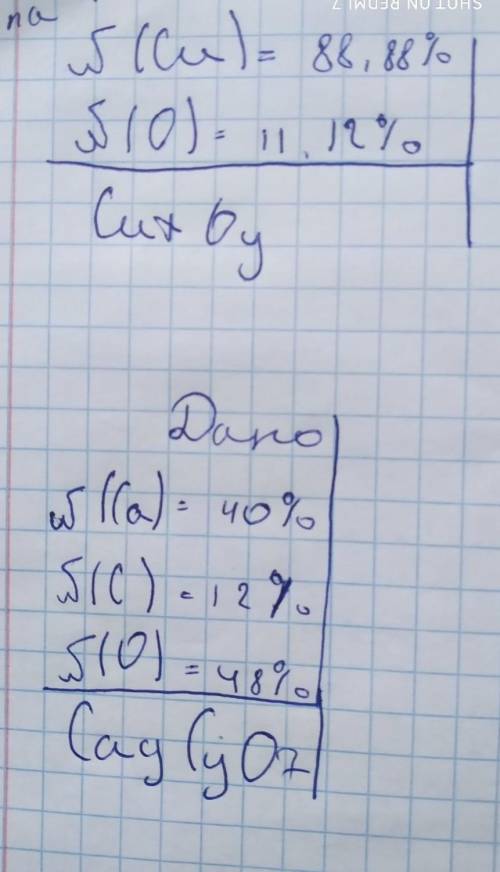 SHOT ON REDMI 7
na
W(Cu) = 88,88%
W(O) = 11,12%
CuxOy
Дано
W(Ca) = 40%
W(C) = 12%
W(O) = 48%
CagCyOz